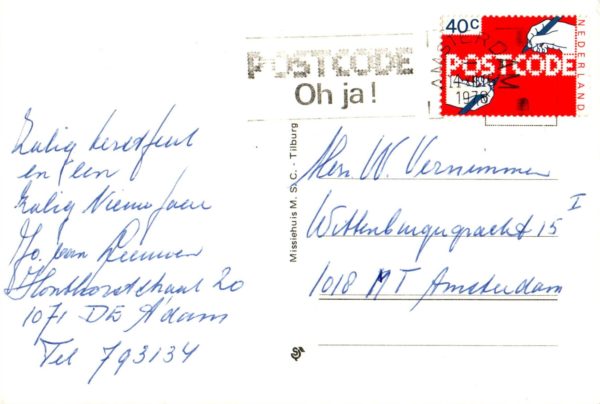 POSTCODE
Oh ja!
AMSTERDAM
1978
40c
NEDERLAND
POSTCODE
Zalig kerstfeest
en een
Zalig Nieuwjaar
Jo. van Leeuwen
Honthorststraat 20
1071 DE A'dam
Tel 793134
Missiehuis M.S.C. - Tilburg
Hr. W. Vernimmen
Wittenburgergracht 15 I
1018 MT Amsterdam